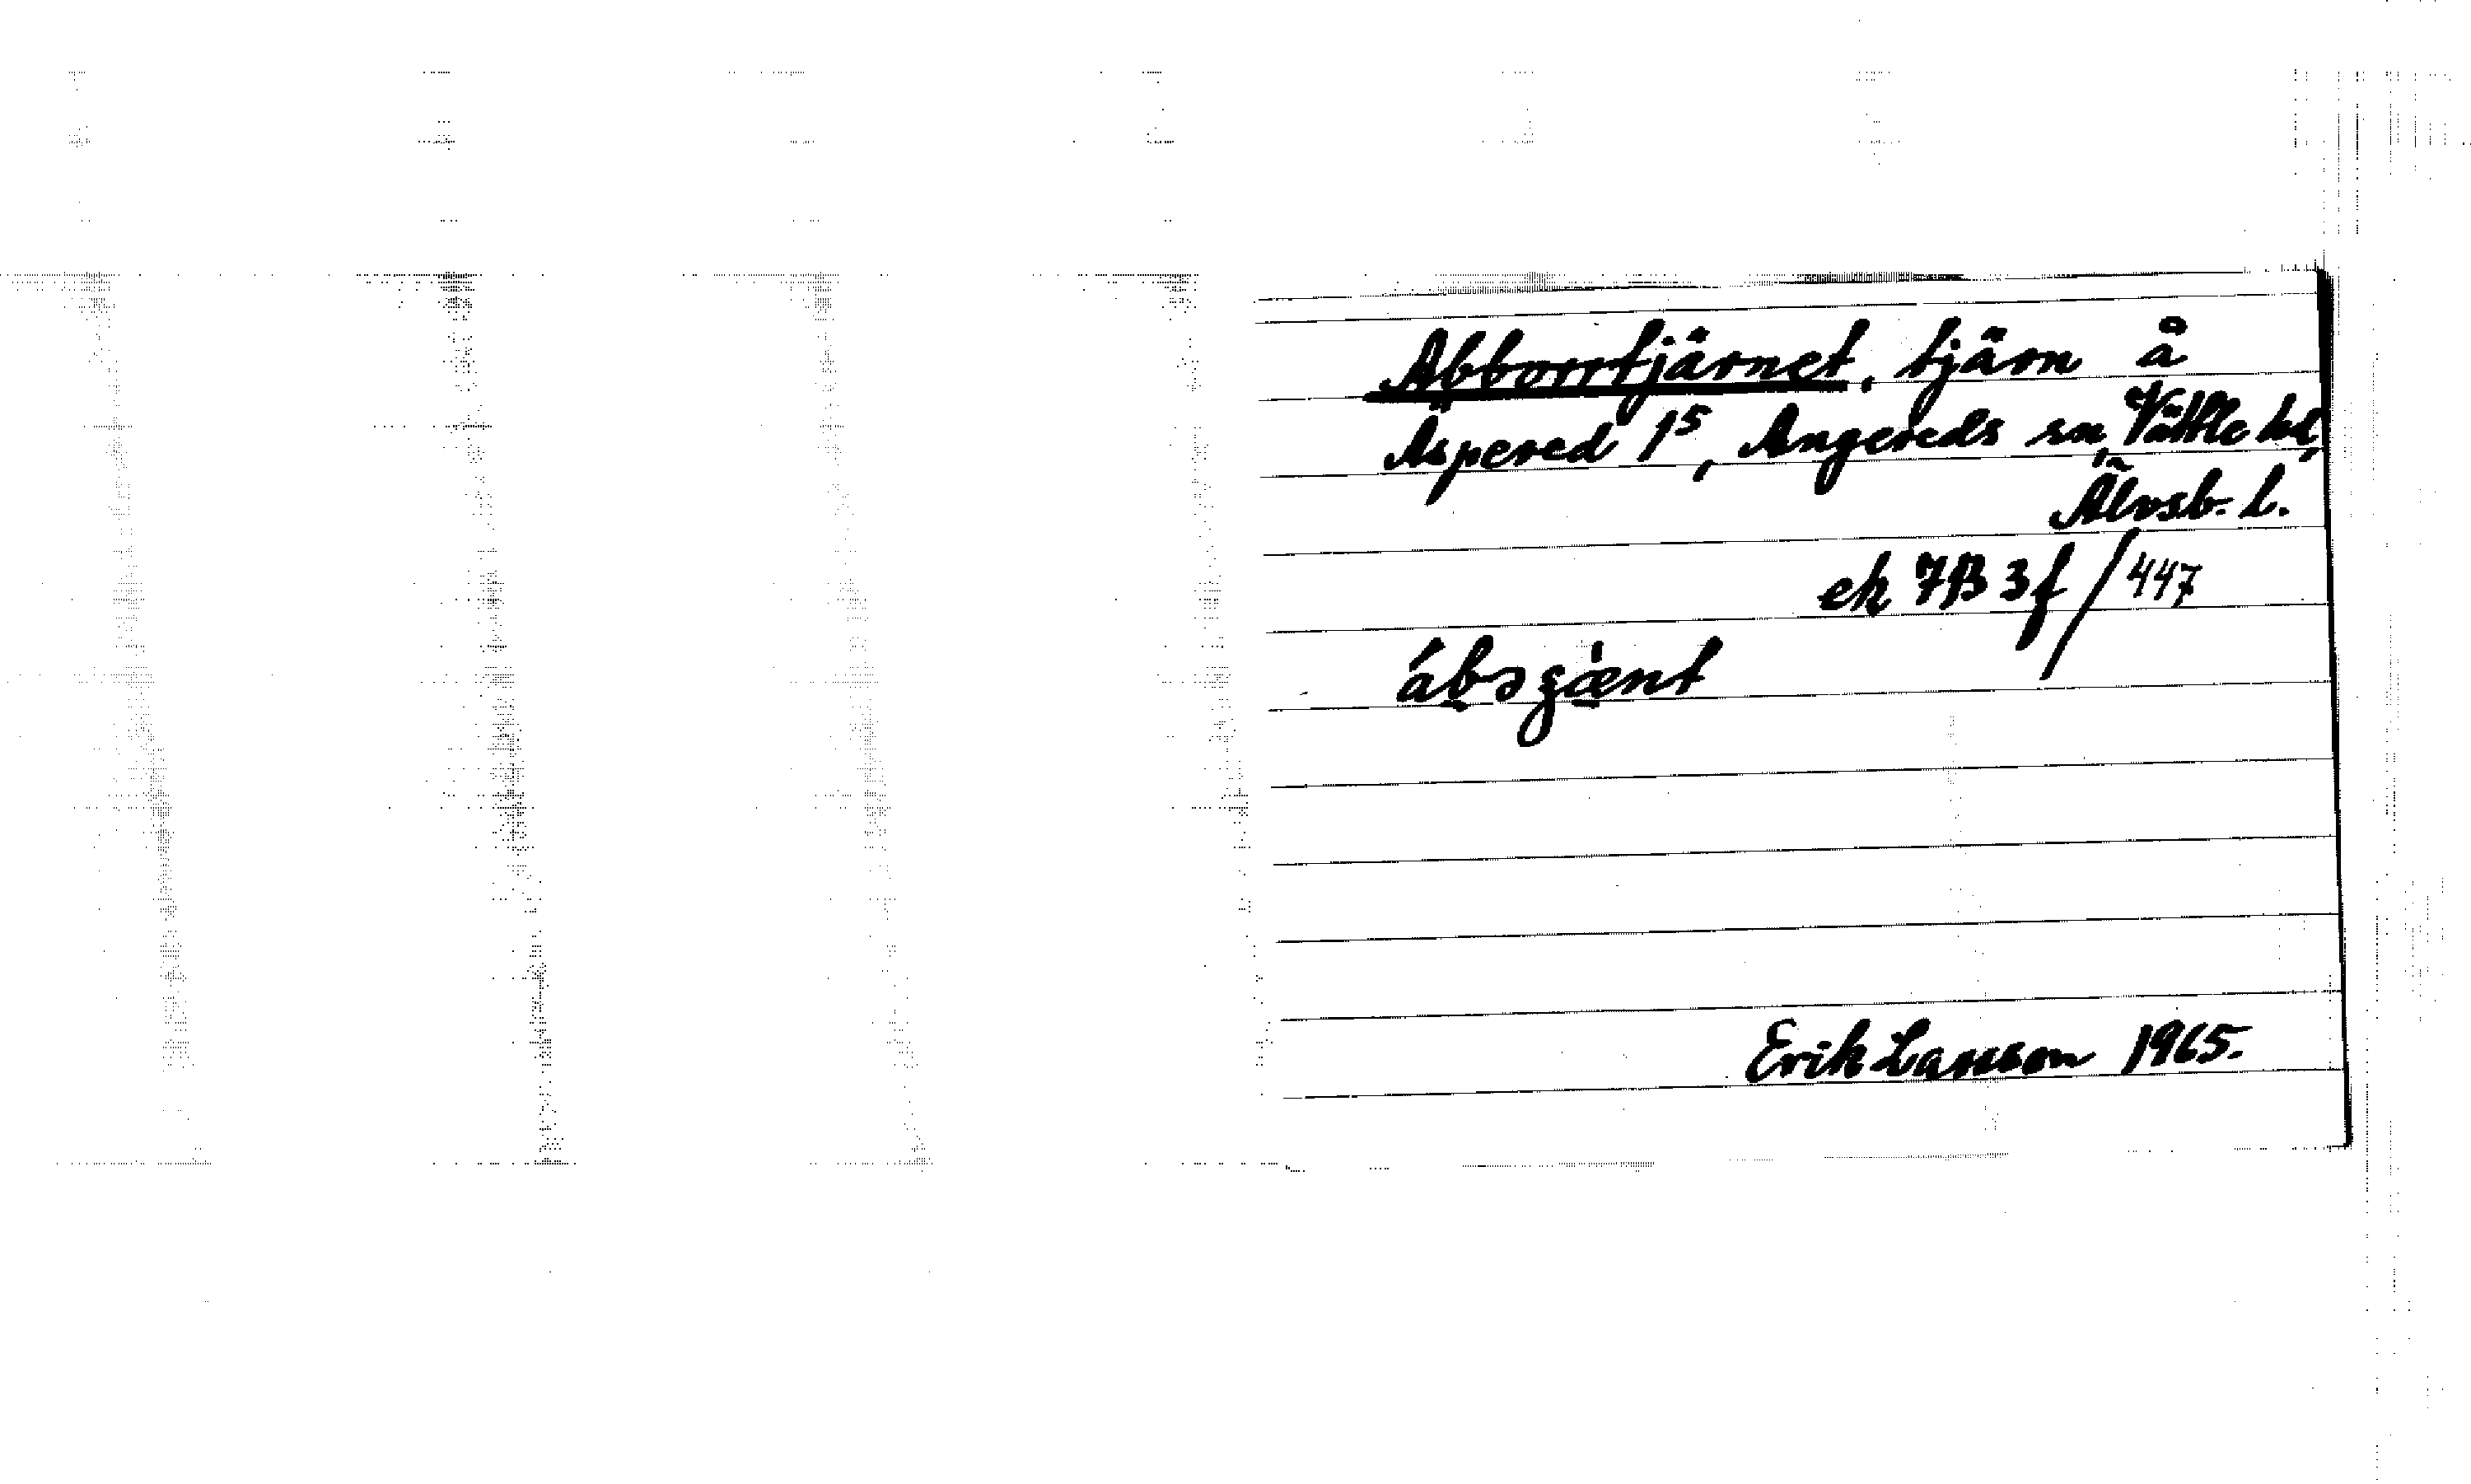 Abborrtjärnet, tjärn å
Äspered 1⁵, Angereds sn, Vättle hd,
Älvsb. L.
ek 7B 3f / 447
Erik Larsson 1965.